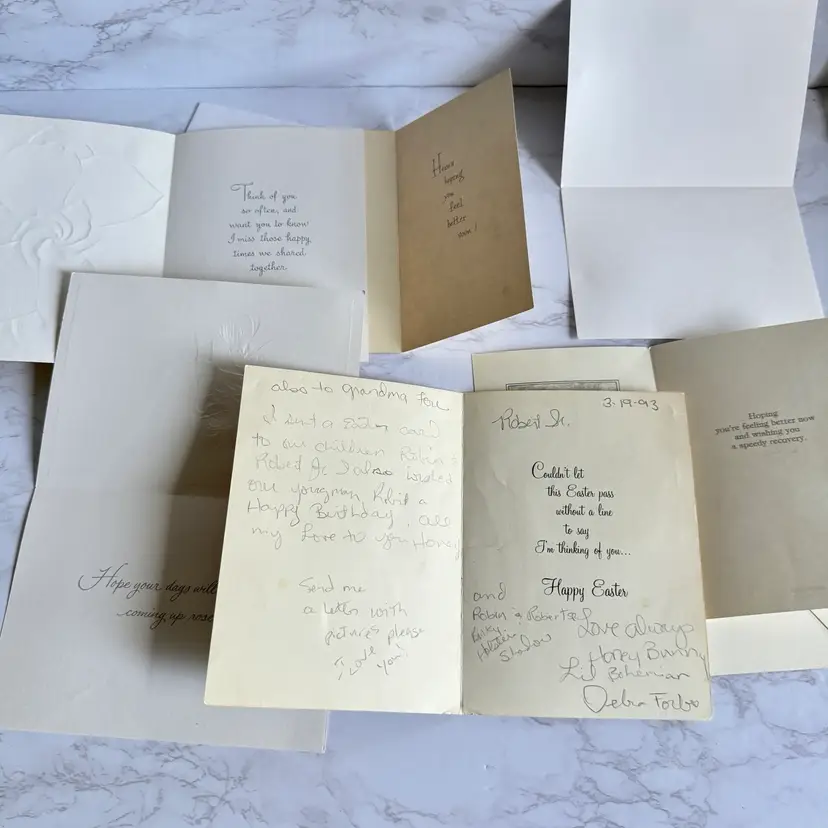 Think of you
so often, and
want you to know
I miss those happy
times we shared
together.
Here's
hoping
you
feel
better
soon!
Hope your days will
coming up rose
Hoping
you're feeling better now
and wishing you
a speedy recovery.
also to grandma
I sent a Easter card
to our children Robin &
Robert Jr. I also wished
our youngman, a
Happy Birthday. all
my Love to you Honey
Send me
a letter with
pictures please
I Love
you!
3-19-93
Robert Jr.
Couldn't let
this Easter pass
without a line
to say
I'm thinking of you...
Happy Easter
and
Robin & Robert
Shadow
Love always
Honey Bunny
Lil Bohemian
Debra